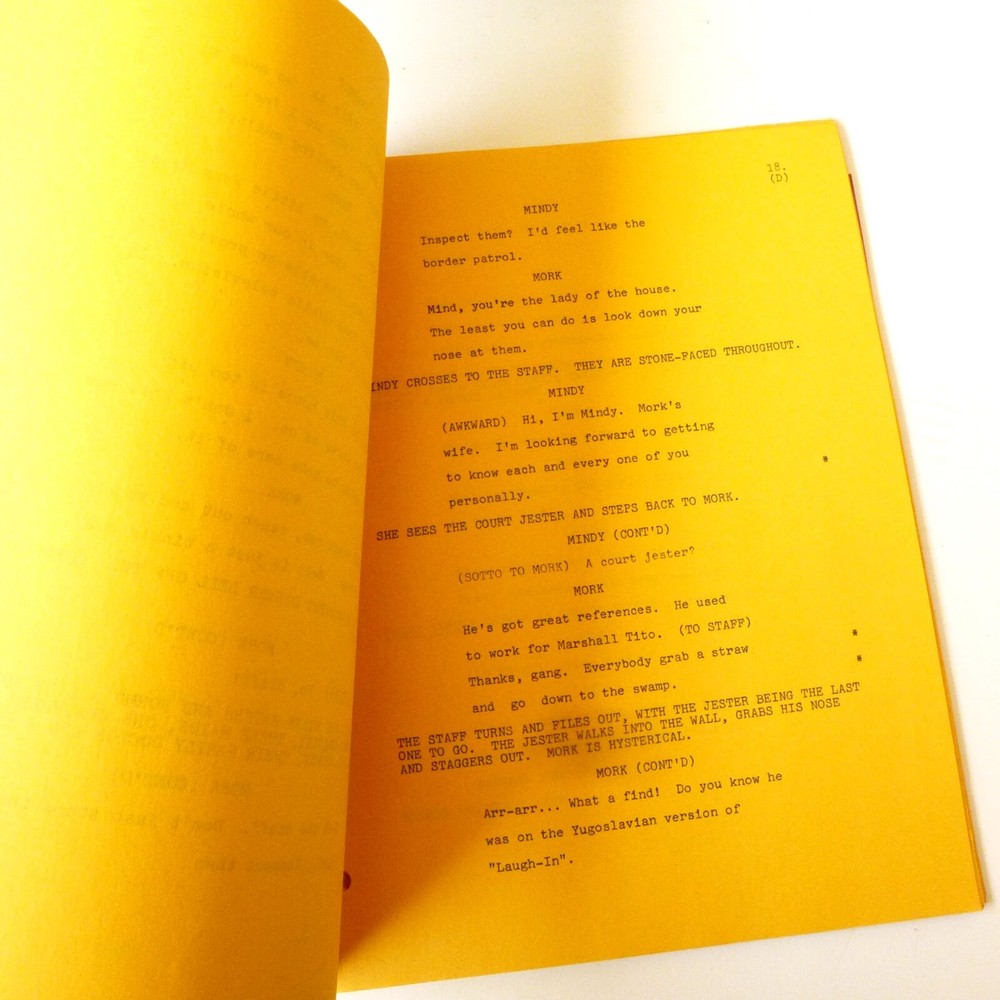 18.
(D)
MINDY
Inspect them? I'd feel like the
border patrol.
MORK
Mind, you're the lady of the house.
The least you can do is look down your
nose at them.
INDY CROSSES TO THE STAFF. THEY ARE STONE-FACED THROUGHOUT.
MINDY
(AWKWARD) Hi, I'm Mindy. Mork's
wife. I'm looking forward to getting
to know each and every one of you *
personally.
SHE SEES THE COURT JESTER AND STEPS BACK TO MORK.
MINDY (CONT'D)
(SOTTO TO MORK) A court jester?
MORK
He's got great references. He used
to work for Marshall Tito. (TO STAFF)
Thanks, gang. Everybody grab a straw *
and go down to the swamp. *
THE STAFF TURNS AND FILES OUT, WITH THE JESTER BEING THE LAST
ONE TO GO. THE JESTER WALKS INTO THE WALL, GRABS HIS NOSE
AND STAGGERS OUT. MORK IS HYSTERICAL.
MORK (CONT'D)
Arr-arr... What a find! Do you know he
was on the Yugoslavian version of
"Laugh-In".